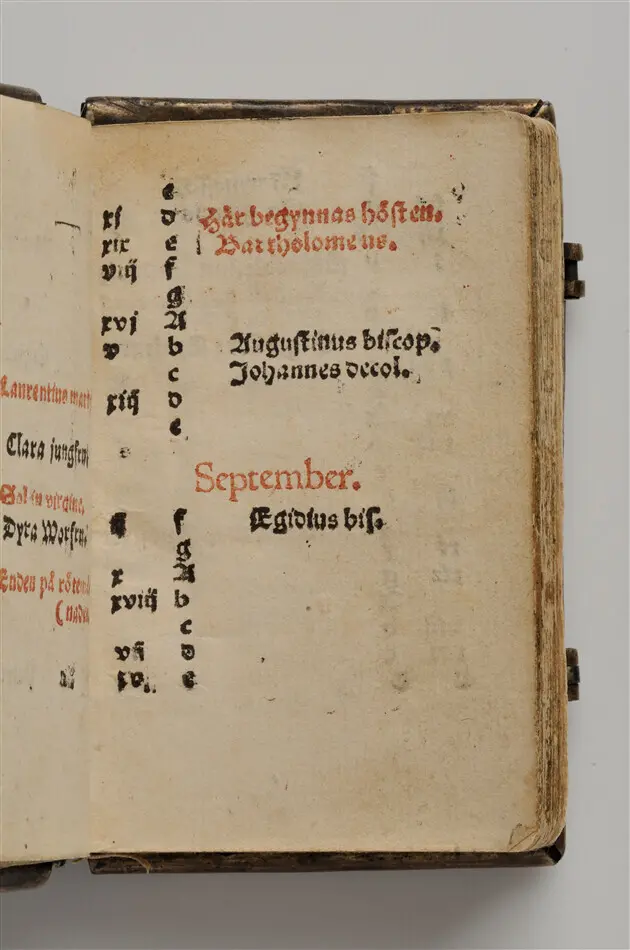 Laurentius mart
Clara jungfru
Sol in virgine.
Dyra Worfru
Enden på röten
(nade
c
xj d Här begynnas hösten.
xix e Bartholomeus.
viij f
g
xvj A
v b Augustinus biscop.
c Johannes decol.
xiij d
e
September.
ij f Ægidius bis.
g
x A
xviij b
c
vij d
xv. e